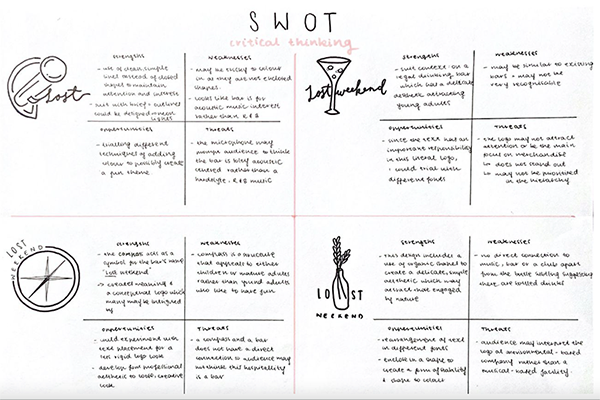 SWOT
critical thinking
Lost
strengths
- use of clean simple
lines instead of closed
shapes to maintain
attention and interest
- suit with brief + outlines
could be designed neon
lights
weaknesses
- may be tricky to colour
in as they are not enclosed
shapes.
- looks like bar is for
acoustic music interest
rather than R&B
opportunities
- trialling different
techniques of adding
colour to possibly create
a fun theme
threats
- the microphone may
prompt audience to think
the bar is acoustic
centred rather than a
R&B music
Lost weekend
strengths
- suits context on a
legal drinking bar
which has a delicate
aesthetic attracting
young adults
weaknesses
- may be similar to existing
bars + may not be
very recognisable
opportunities
- since the text has an
important responsibility
in this literal logo,
I could trial with
different fonts
threats
- the logo may not attract
attention or be the main
focus on merchandise
as does not stand out
so may not be prioritised
in the hierarchy
LOST
WEEKEND
strengths
- the compass acts as a
symbol for the bar's name
'lost weekend'
-> creates meaning + a
conceptual logo which
many may be intrigued
by
weaknesses
- compass is a structure
that appeals to either
children or mature adults
rather than young adults
who like to have fun
opportunities
- could experiment with
text placement for a
less rigid logo look
- develop from professional
aesthetic to look creative
threats
- a compass and a bar
does not have a direct
connection so audience may
not think this hospitality
is a bar
LOST
WEEKEND
strengths
- this design includes a
use of organic shapes to
create a delicate, simple
aesthetic which may
attract those engaged
by nature
weaknesses
- no direct connection to
music, bar or a club apart
from the bottle suggesting
there are bottled drinks
opportunities
- rearrangement of text
in different fonts
- enclose in a shape to
create a form of stability
+ shape to colour
threats
- audience may interpret the
logo as environmental-based
company rather than a
musical-based facility.